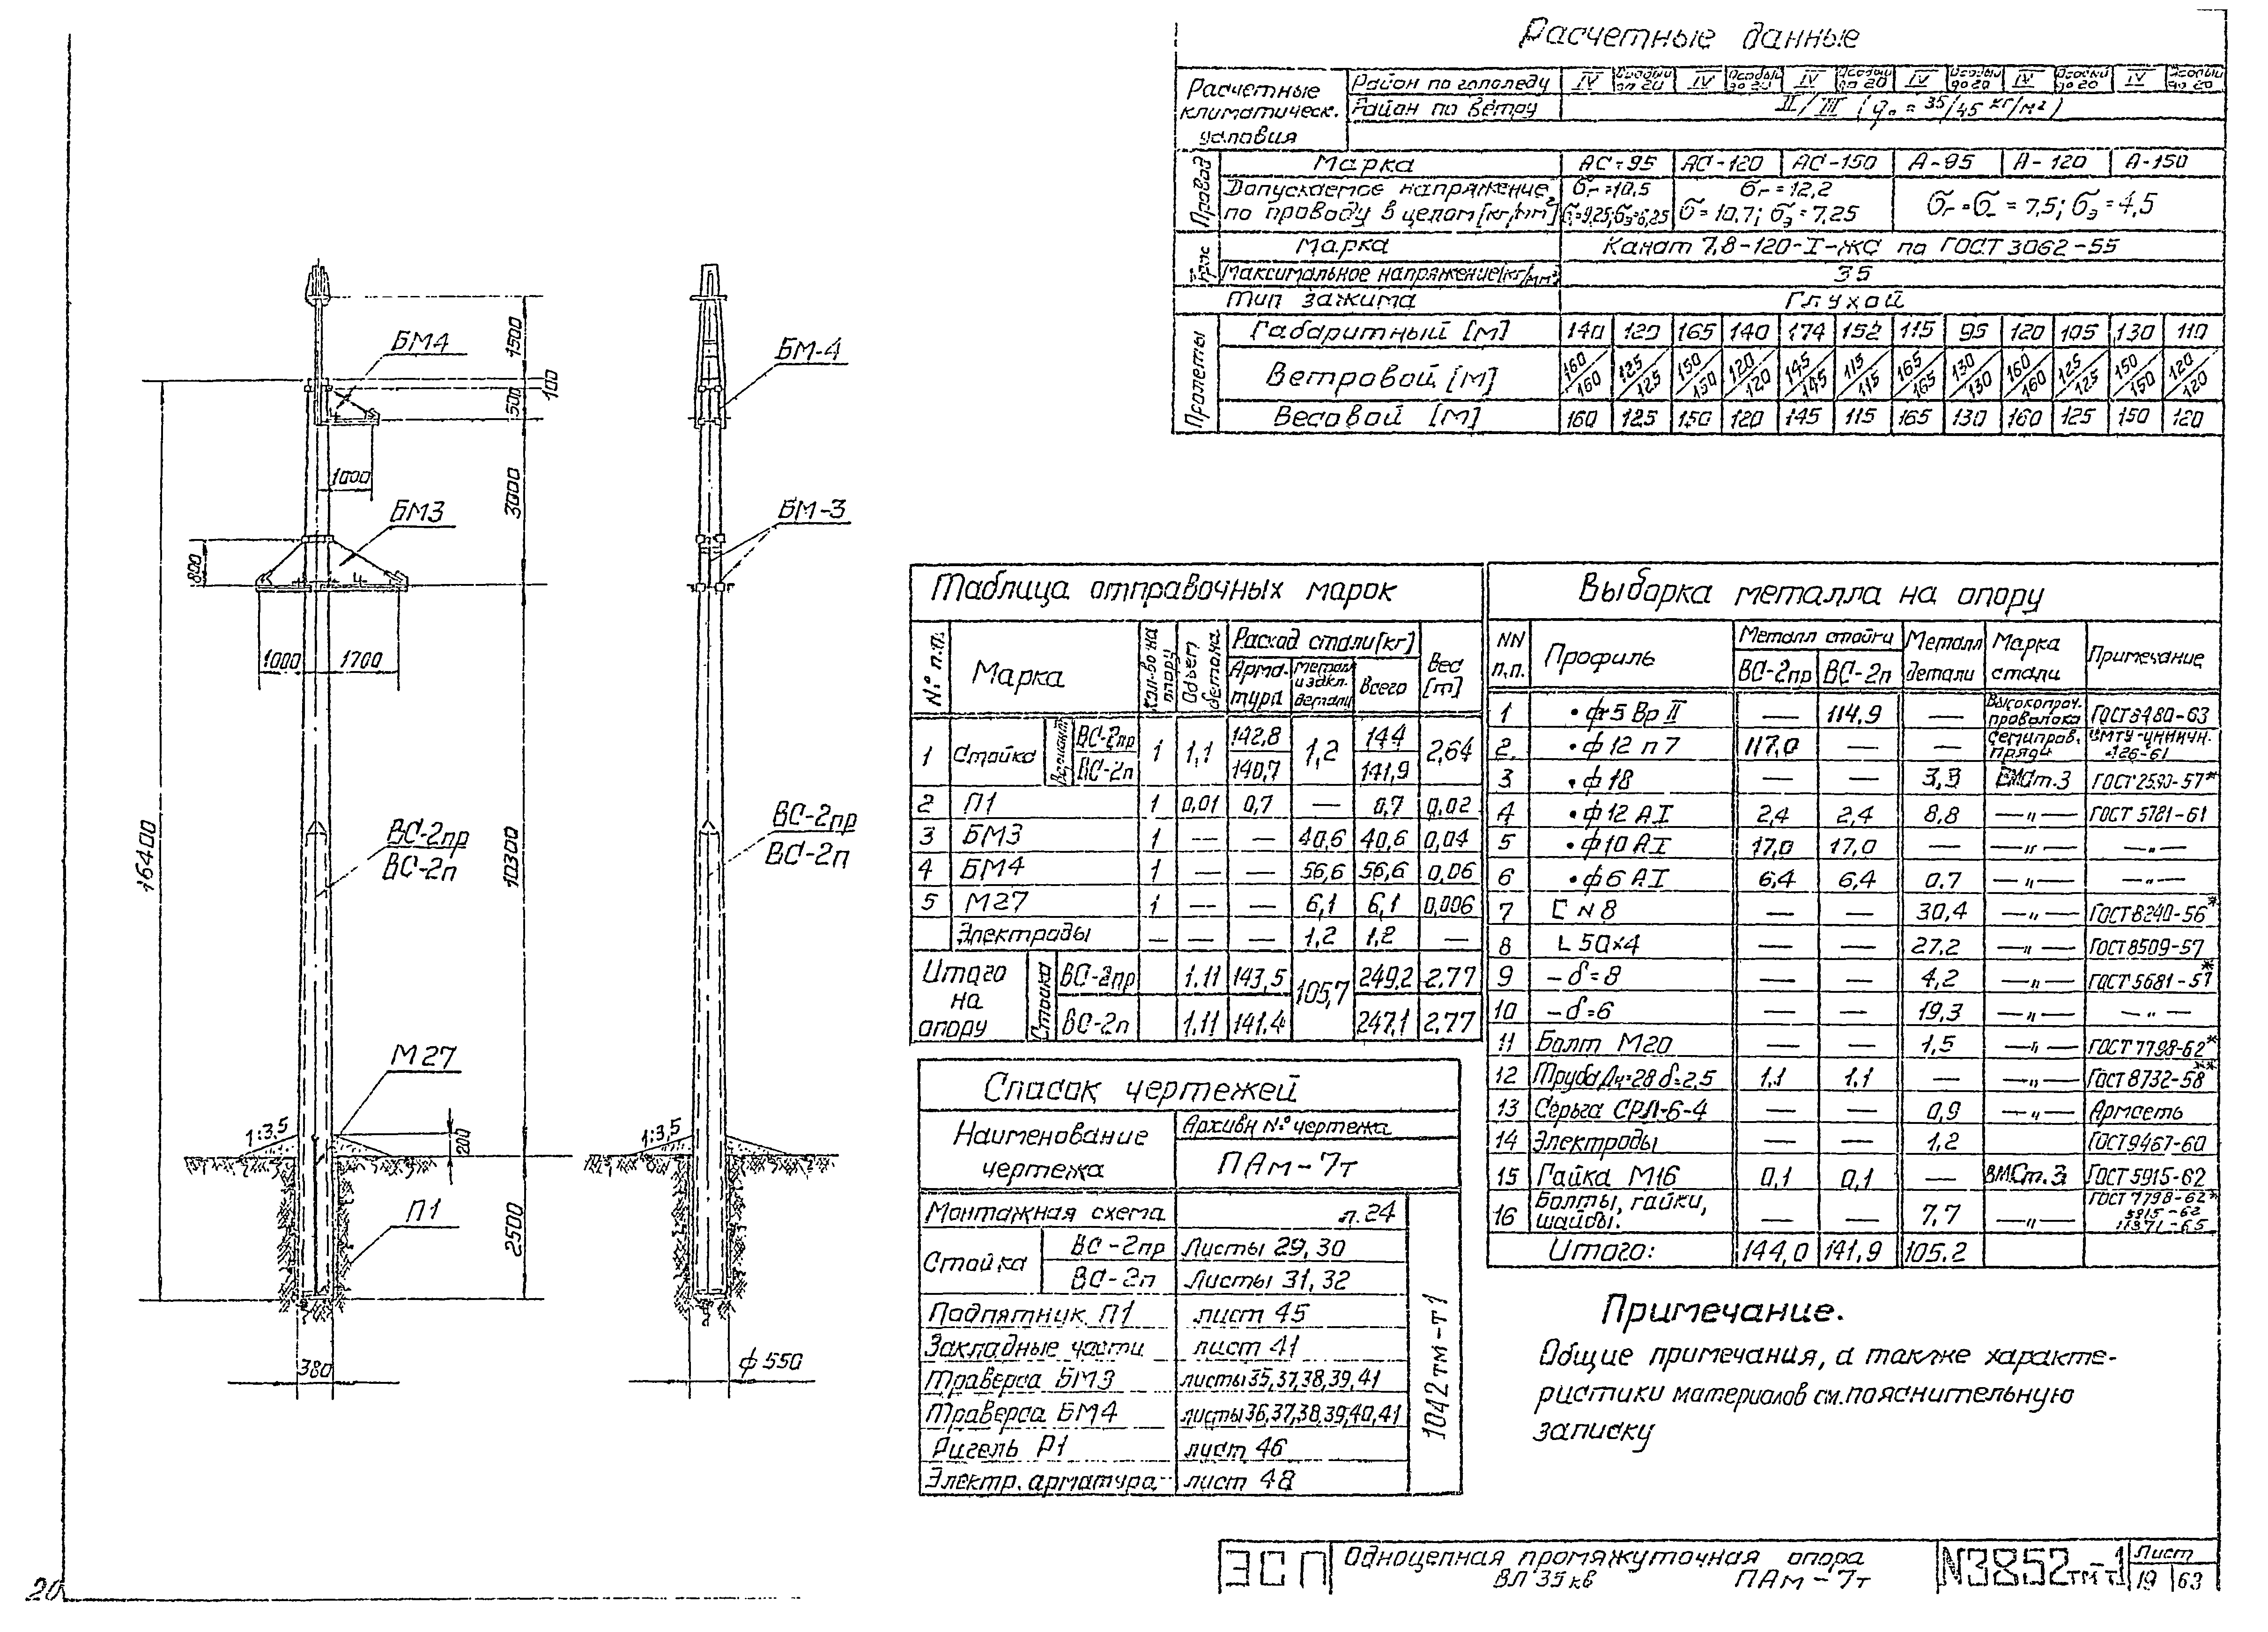 Расчетные данные
Расчетные климатическ. условия
Район по гололеду IV Особый до 20 IV Особый до 20 IV Особый до 20 IV Особый до 20 IV Особый до 20 IV Особый до 20
Район по ветру II/III (q₀ = 35/45 кг/м²)
Провод
Марка АС-95 АС-120 АС-150 А-95 А-120 А-150
Допускаемое напряжение по проводу в целом [кг/мм²]
σг=10,5 σг=12,2
σ-=9,25; σэ=6,25 σ=10,7; σэ=7,25 σг=σ-=7,5; σэ=4,5
Трос
Марка Канат 7,8-120-I-ЖС по ГОСТ 3062-55
Максимальное напряжение [кг/мм²] 35
Тип зажима Глухой
Пролеты
Габаритный [м] 140 120 165 140 174 152 115 95 120 105 130 110
Ветровой [м] 160/160 125/125 150/150 120/120 145/145 115/115 165/165 130/130 160/160 125/125 150/150 120/120
Весовой [м] 160 125 150 120 145 115 165 130 160 125 150 120
БМ4
БМ3
1500
100
500
3000
10300
2500
16400
1000
800
1000 1700
ВС-2пр
ВС-2п
М27
1:3,5
200
П1
380
БМ-4
БМ-3
ВС-2пр
ВС-2п
1:3,5
ф 550
Таблица отправочных марок
N° п.п. Марка Кол-во на опору Объем бетона Расход стали [кг] Вес [т]
Арматура Металл и закл. детали Всего
1 Стойка Вариант ВС-2пр 1 1,1 142,8 1,2 144 2,64
ВС-2п 140,7 141,9
2 П1 1 0,01 0,7 — 0,7 0,02
3 БМ3 1 — — 40,6 40,6 0,04
4 БМ4 1 — — 56,6 56,6 0,06
5 М27 1 — — 6,1 6,1 0,006
Электроды — — — 1,2 1,2 —
Итого на опору Стойка ВС-2пр 1.11 143,5 105,7 249,2 2,77
ВС-2п 1.11 141.4 247,1 2,77
Список чертежей
Наименование чертежа Архивн N° чертежа
ПАм-7т
Монтажная схема л.24
Стойка ВС-2пр Листы 29, 30
ВС-2п Листы 31, 32
Подпятник П1 лист 45
Закладные части лист 41
Траверса БМ3 листы 35,37,38,39,41
Траверса БМ4 листы 36,37,38,39,40,41
Ригель Р1 лист 46
Электр. арматура лист 48
1042тм-т1
Выборка металла на опору
NN п.п. Профиль Металл стойки Металл детали Марка стали Примечание
ВС-2пр ВС-2п
1 •ф5 Вр II — 114,9 — Высокопроч. проволока ГОСТ 8480-63
2. •ф12 п7 117,0 — — Семипров. пряди
3 •ф18 — — 3,3 ВМСт.3 ГОСТ 2590-57*
4 •ф12 АI 2,4 2,4 8,8 —„— ГОСТ 5781-61
5 •ф10 АI 17,0 17,0 — —„— —„—
6 •ф6 АI 6,4 6,4 0,7 —„— —„—
7 С N8 — — 30,4 —„— ГОСТ 8240-56*
8 L 50х4 — — 27,2 —„— ГОСТ 8509-57
9 –δ=8 — — 4,2 —„— ГОСТ 5681-57*
10 –δ=6 — — 19,3 —„— —„—
11 Болт М20 — — 1,5 —„— ГОСТ 7798-62*
12 Труба Дн=28 δ=2,5 1,1 1,1 — —„— ГОСТ 8732-58**
13 Серьга СРЛ-6-4 — — 0,9 —„— Армсеть
14 Электроды — — 1,2 ГОСТ 9467-60
15 Гайка М16 0,1 0,1 — ВМСт.3 ГОСТ 5915-62
16 Болты, гайки, шайбы. — — 7,7 —„— ГОСТ 7798-62* 5915-62 11371-65
Итого: 144,0 141,9 105,2
Примечание.
Общие примечания, а также характе-
ристики материалов см. пояснительную
записку
ЭСП
Одноцепная промяжуточная опора
ВЛ 35 кв ПАм-7т
N3852тм-т1
Лист
19 63
20